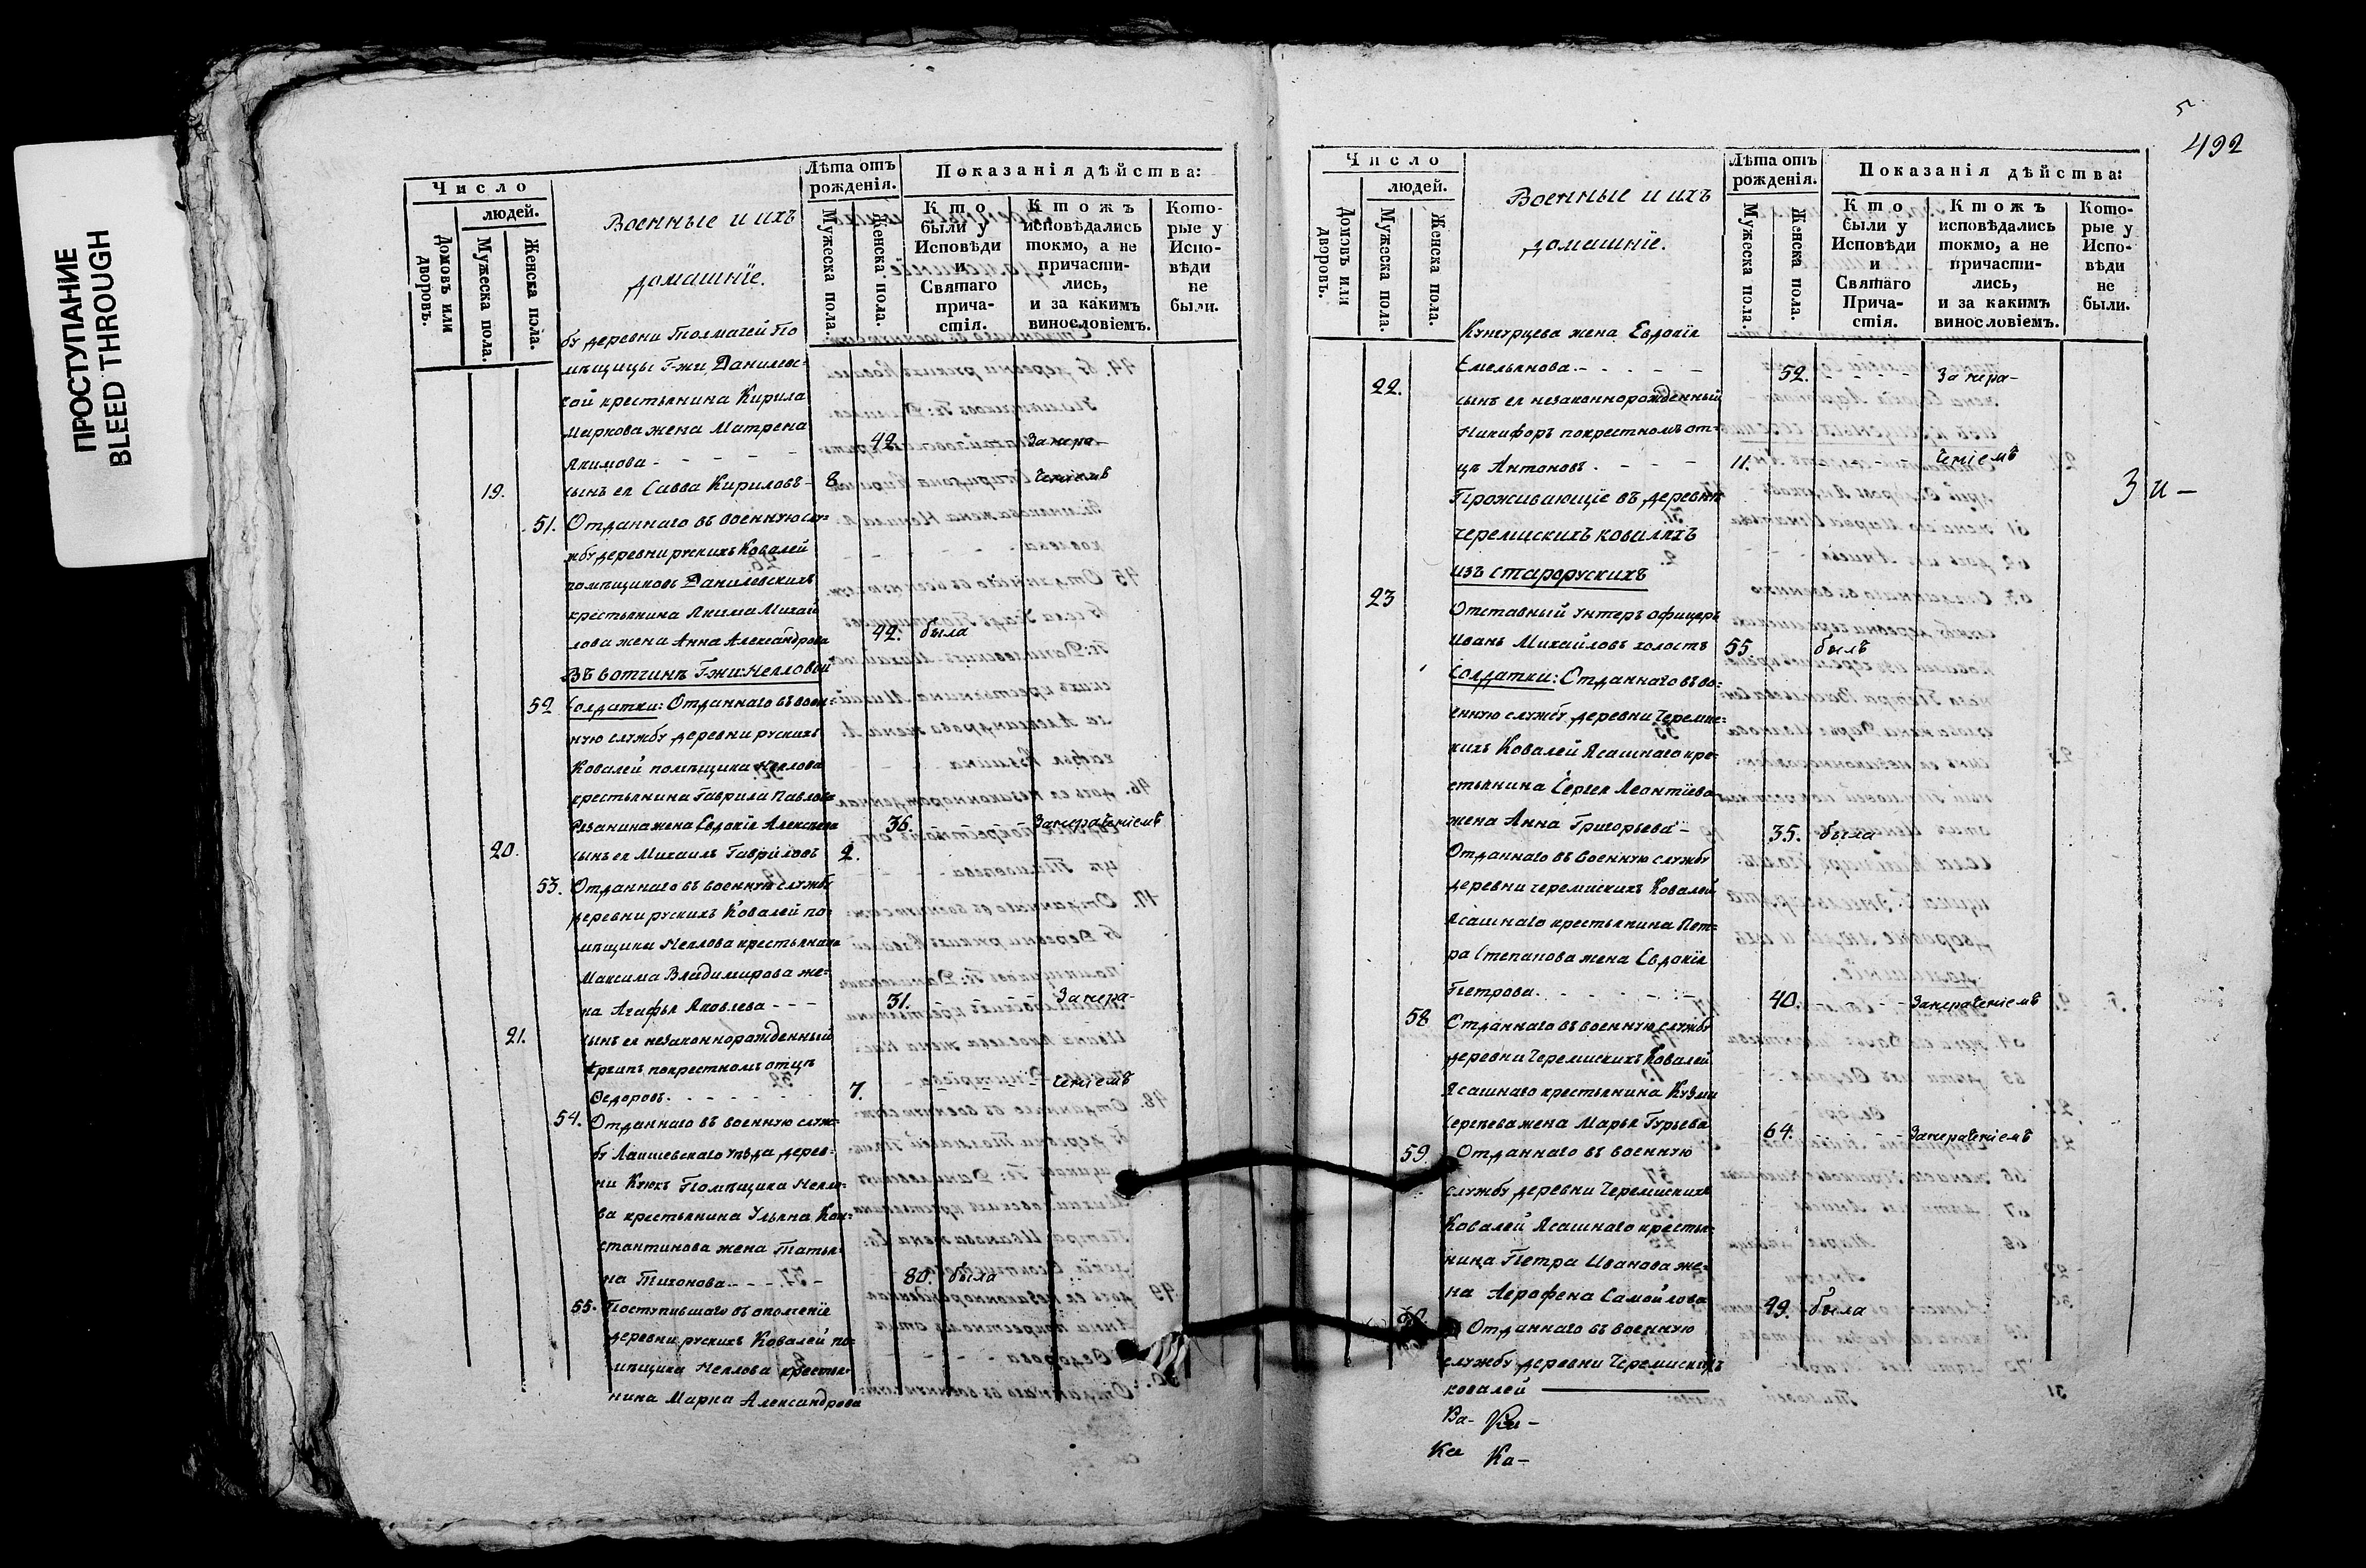 ПРОСТУПАНИЕ
BLEED THROUGH
Число
людей.
Домовъ или дворовъ.
Мужеска пола.
Женска пола.
Военные и ихъ
домашнїе.
Лѣта отъ рожденія.
Мужеска пола.
Женска пола.
Показанія дѣйства:
Кто были у Исповѣди и Святаго причастія.
Ктожъ исповѣдались токмо, а не причастились, и за какимъ винословіемъ.
Которые у Исповѣди не были.
бу деревни Толмачей По
мѣщицы Г-жи Данилевс=
кой крестьянина Кирила
Маркова жена Матрена
Якимова - - - - 42. Занера-
19. сынъ ея Савва Кириловъ - 8 ченіемъ
51. Отданнаго въ военную слу=
жбу деревни рускихъ Ковалей
помѣщиковъ Данилевскихъ
крестьянина Якима Михай
лова жена Анна Александрова 42. была
Въ вотчинѣ Г-жи: Нелловой
52 Солдатки: Отданнаго въ воен=
ную службу деревни рускихъ
Ковалей помѣщика Неклова
крестьянина Гаврила Павлова
Резанина жена Евдокїя Алексѣева 36. Занераченіемъ
20. сынъ ея Михаилъ Гавриловъ 2.
53. Отданнаго въ военную службу
деревни рускихъ Ковалей по=
мѣщика Неклова крестьянина
Максима Владимирова же=
на Агафья Яковлева - - - 31. Занера-
21. сынъ ея незаконнорожденный
Архипъ покрестномъ отцѣ
Ѳедоровъ. - - - - 7. ченіемъ
54. Отданнаго въ военную служ=
бу Лаишевскаго уѣзда дерев=
ни Кукюкъ Помѣщика Некло=
ва крестьянина Ульяна Кон=
стантинова жена Татья=
на Тихонова. - - - - 80. была
55. Поступившаго въ ополченїе
деревни рускихъ Ковалей по=
мѣщика Неклова крестья=
нина Марка Александрова
5
492
Число
людей.
Домовъ или дворовъ.
Мужеска пола.
Женска пола.
Военные и ихъ
домашнїе.
Лѣта отъ рожденія.
Мужеска пола.
Женска пола.
Показанія дѣйства:
Кто были у Исповѣди и Святаго Причастія.
Ктожъ исповѣдались токмо, а не причастились, и за какимъ винословіемъ.
Которые у Исповѣди не были.
жена Евдокїя
Емельянова. - - - - 52. Занера-
22. сынъ ея незаконнорожденный
Никифоръ покрестномъ от=
цѣ Антоновъ. - - - 11. ченіемъ
Проживающїе въ деревнѣ
черемискихъ коваляхъ
изъ старорускихъ
23 Отставный унтеръ офицеръ
Иванъ Михайловъ холостъ 55 былъ
Солдатки: Отданнаго въ во=
енную службу деревни Черемис=
кихъ Ковалей Ясашнаго кре=
стьянина Сергея Леонтїева
жена Анна Григорьева - 35. была
Отданнаго въ военную службу
деревни черемискихъ Ковалей
Ясашнаго крестьянина Пет=
ра Степанова жена Евдокїя
Петрова. - - - - 40. Занераченіемъ
58 Отданнаго въ военную службу
деревни Черемискихъ Ковалей
Ясашнаго крестьянина Кузмы
Сергѣева жена Марья Гурьева 64. Занераченіемъ
59. Отданнаго въ военную
службу деревни Черемискихъ
Ковалей Ясашнаго крестья=
нина Петра Иванова же=
на Агрофена Самойлова 49. была
Отданнаго въ военную
службу деревни Черемискихъ
ковалей
Ка-